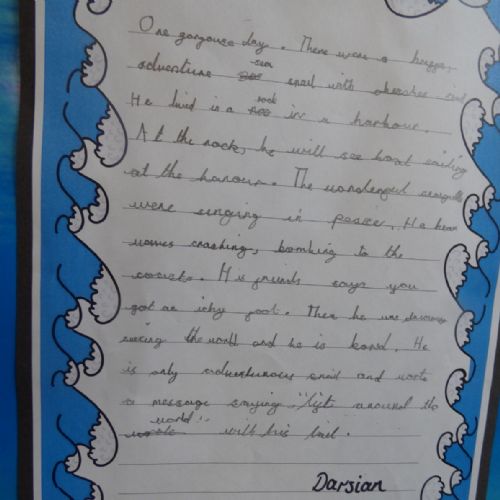 One gorgouse day. There were a hugge,
adventure sea snail with
He lived is a rock in a harbour.
At the rock, he will see boat sailing
at the harour. The wonderfull seagulls
were singing in peace. He hear
waves crashing, bombing to the
His friends says you
got an ichy foot. Then he was
seeing the world and he is bord. He
is only adventurous snail and wrote
a message saying "lift around the
world" with his tail.
Darsian